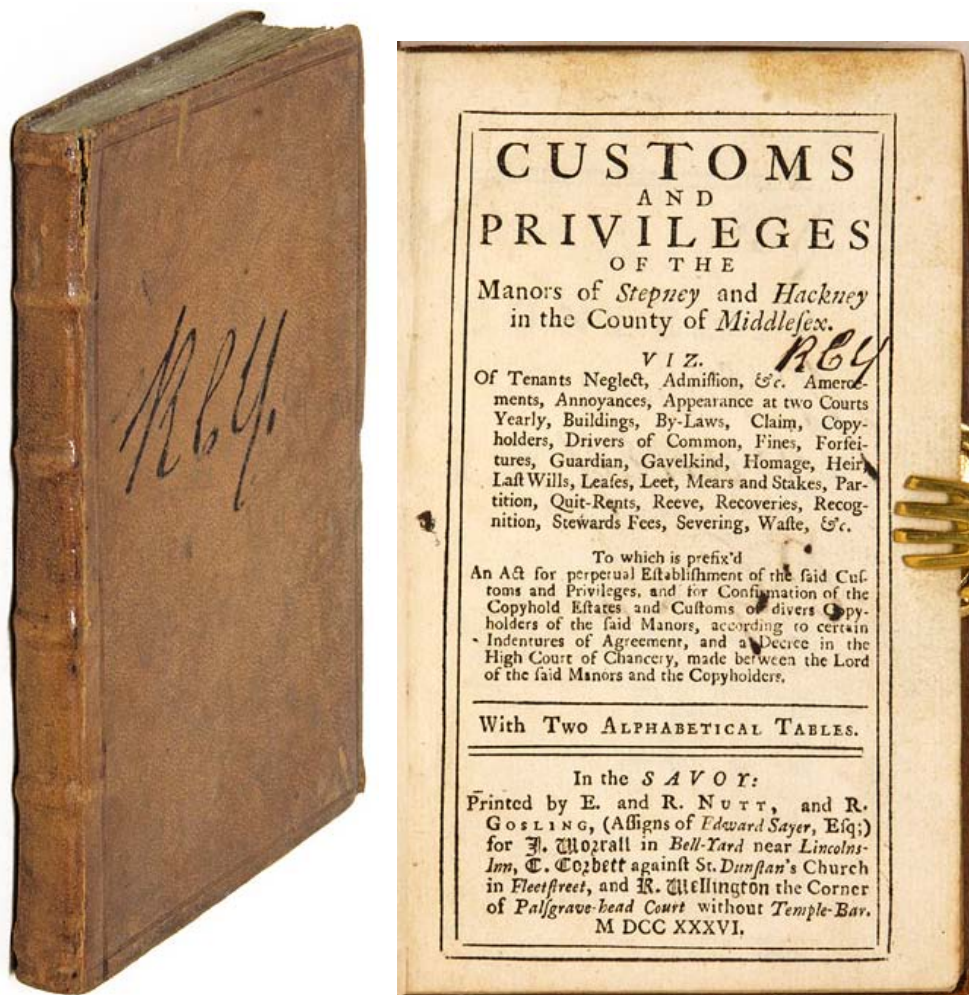 RCY.
CUSTOMS
AND
PRIVILEGES
OF THE
Manors of Stepney and Hackney
in the County of Middleſex.
RCY
VIZ.
Of Tenants Neglect, Admiſſion, &c. Amerce-
ments, Annoyances, Appearance at two Courts
Yearly, Buildings, By-Laws, Claim, Copy-
holders, Drivers of Common, Fines, Forfei-
tures, Guardian, Gavelkind, Homage, Heir,
Laſt Wills, Leaſes, Leet, Mears and Stakes, Par-
tition, Quit-Rents, Reeve, Recoveries, Recog-
nition, Stewards Fees, Severing, Waſte, &c.
To which is prefix'd
An Act for perpetual Eſtabliſhment of the ſaid Cuſ-
toms and Privileges, and for Confirmation of the
Copyhold Eſtates and Cuſtoms of divers Copy-
holders of the ſaid Manors, according to certain
Indentures of Agreement, and a Decree in the
High Court of Chancery, made between the Lord
of the ſaid Manors and the Copyholders.
With Two ALPHABETICAL TABLES.
In the SAVOY:
Printed by E. and R. NUTT, and R.
GOSLING, (Aſſigns of Edward Sayer, Eſq;)
for J. Worrall in Bell-Yard near Lincolns-
Inn, C. Corbett againſt St. Dunſtan's Church
in Fleetſtreet, and R. Wellington the Corner
of Palſgrave-head Court without Temple-Bar.
M DCC XXXVI.